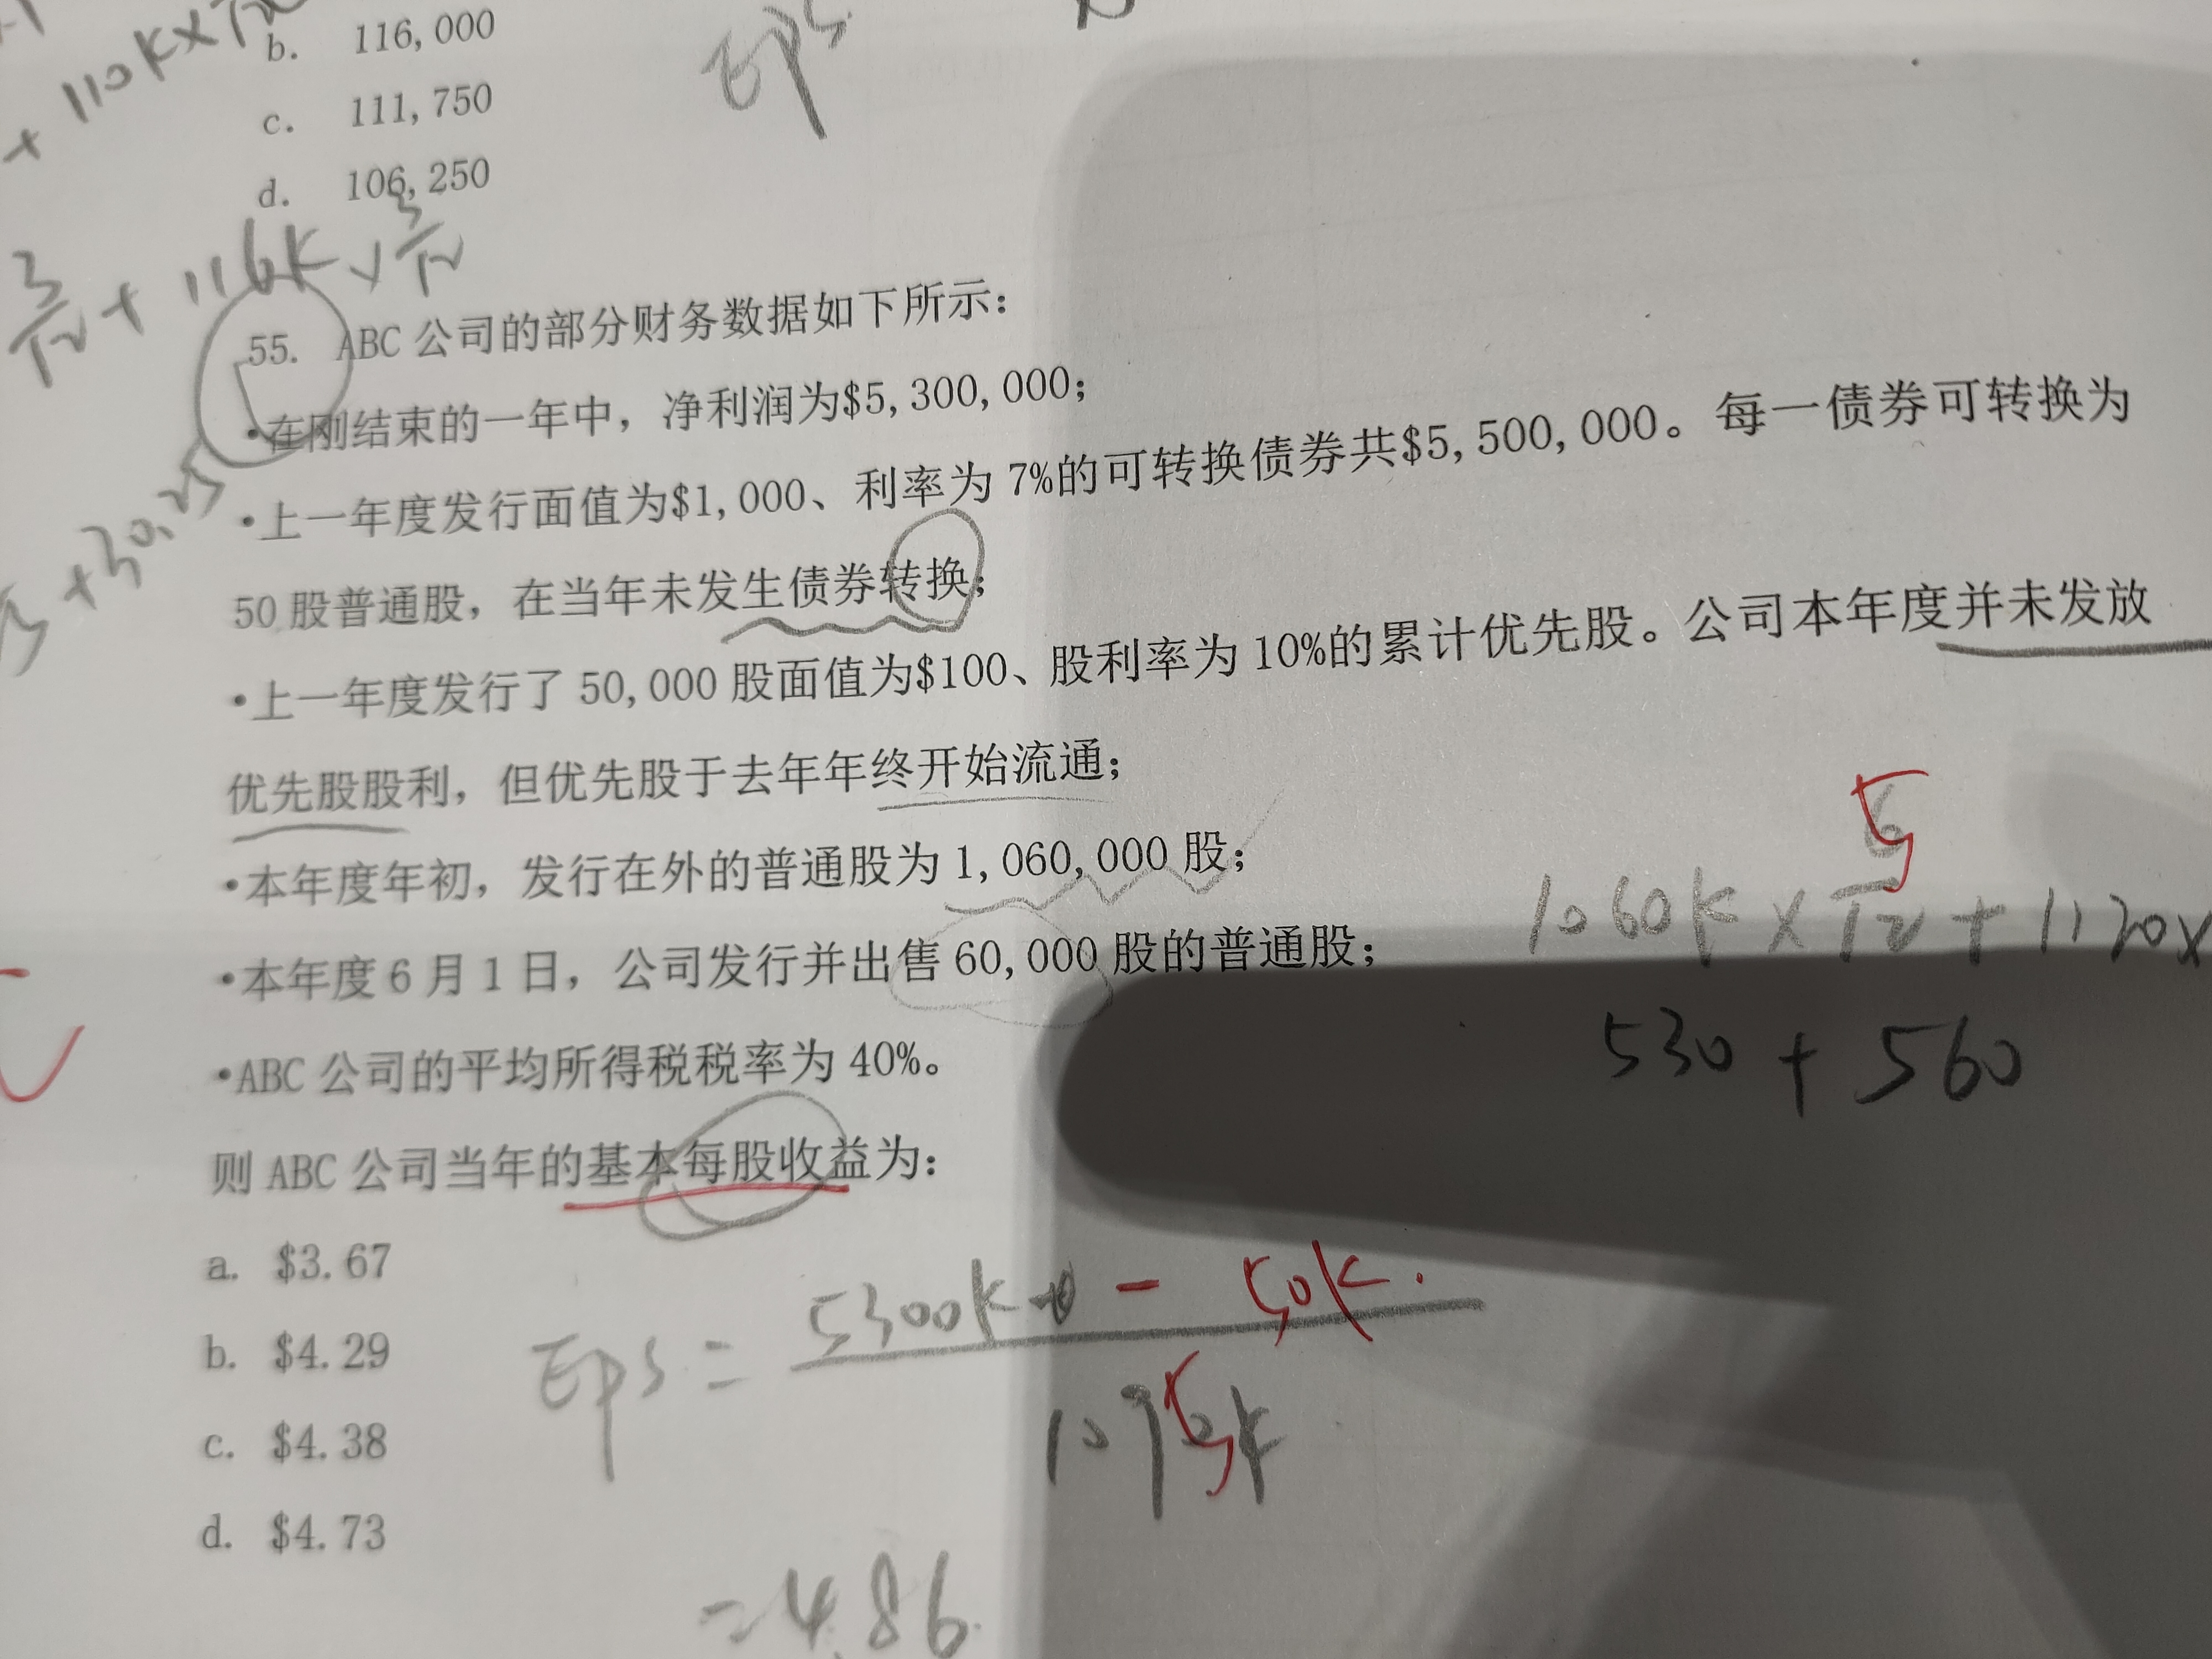 + 110K×
b. 116,000
EPS
c. 111,750
d. 106,250
3/12 + 116K × 3/12
55. ABC 公司的部分财务数据如下所示：
•在刚结束的一年中，净利润为$5,300,000；
•上一年度发行面值为$1,000、利率为 7%的可转换债券共$5,500,000。每一债券可转换为
+30.25
50 股普通股，在当年未发生债券转换；
•上一年度发行了 50,000 股面值为$100、股利率为 10%的累计优先股。公司本年度并未发放
优先股股利，但优先股于去年年终开始流通；
•本年度年初，发行在外的普通股为 1,060,000 股；
1060K × 5/12 + 1120×
•本年度 6 月 1 日，公司发行并出售 60,000 股的普通股；
530 + 560
•ABC 公司的平均所得税税率为 40%。
则 ABC 公司当年的基本每股收益为：
a. $3.67
b. $4.29
c. $4.38
d. $4.73
EPS = 5300K - 50K.
1095K
=4.86